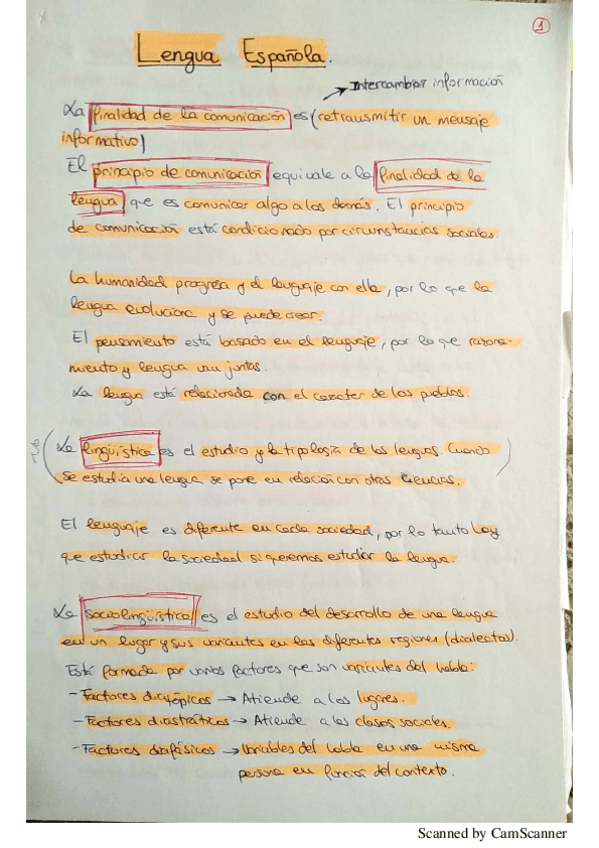 1
Lengua Española.
Intercambiar información
La finalidad de la comunicación es (retrasmitir un mensaje
informativo)
El principio de comunicación equivale a la finalidad de la
lengua, que es comunicar algo a los demás. El principio
de comunicación está condicionado por circunstancias sociales.
La humanidad progresa y el lenguaje con ella, por lo que la
lengua evoluciona y se puede crear.
El pensamiento está basado en el lenguaje, por lo que razona-
miento y lengua van juntas.
La lengua está relacionada con el caracter de los pueblos.
(La lingüística es el estudio y la tipología de las lenguas. Cuando
se estudia una lengua se pone en relación con otras ciencias.)
El lenguaje es diferente en cada sociedad, por lo tanto hay
que estudiar la sociedad si queremos estudiar la lengua.
La sociolingüística es el estudio del desarrollo de una lengua
en un lugar y sus variantes en las diferentes regiones (dialectos).
Está formada por varios factores que son variantes del habla:
- Factores diatópicos → Atiende a los lugares.
- Factores diastráticos → Atiende a las clases sociales.
- Factores diafásicos → Variables del habla en una misma
persona en función del contexto.
Scanned by CamScanner